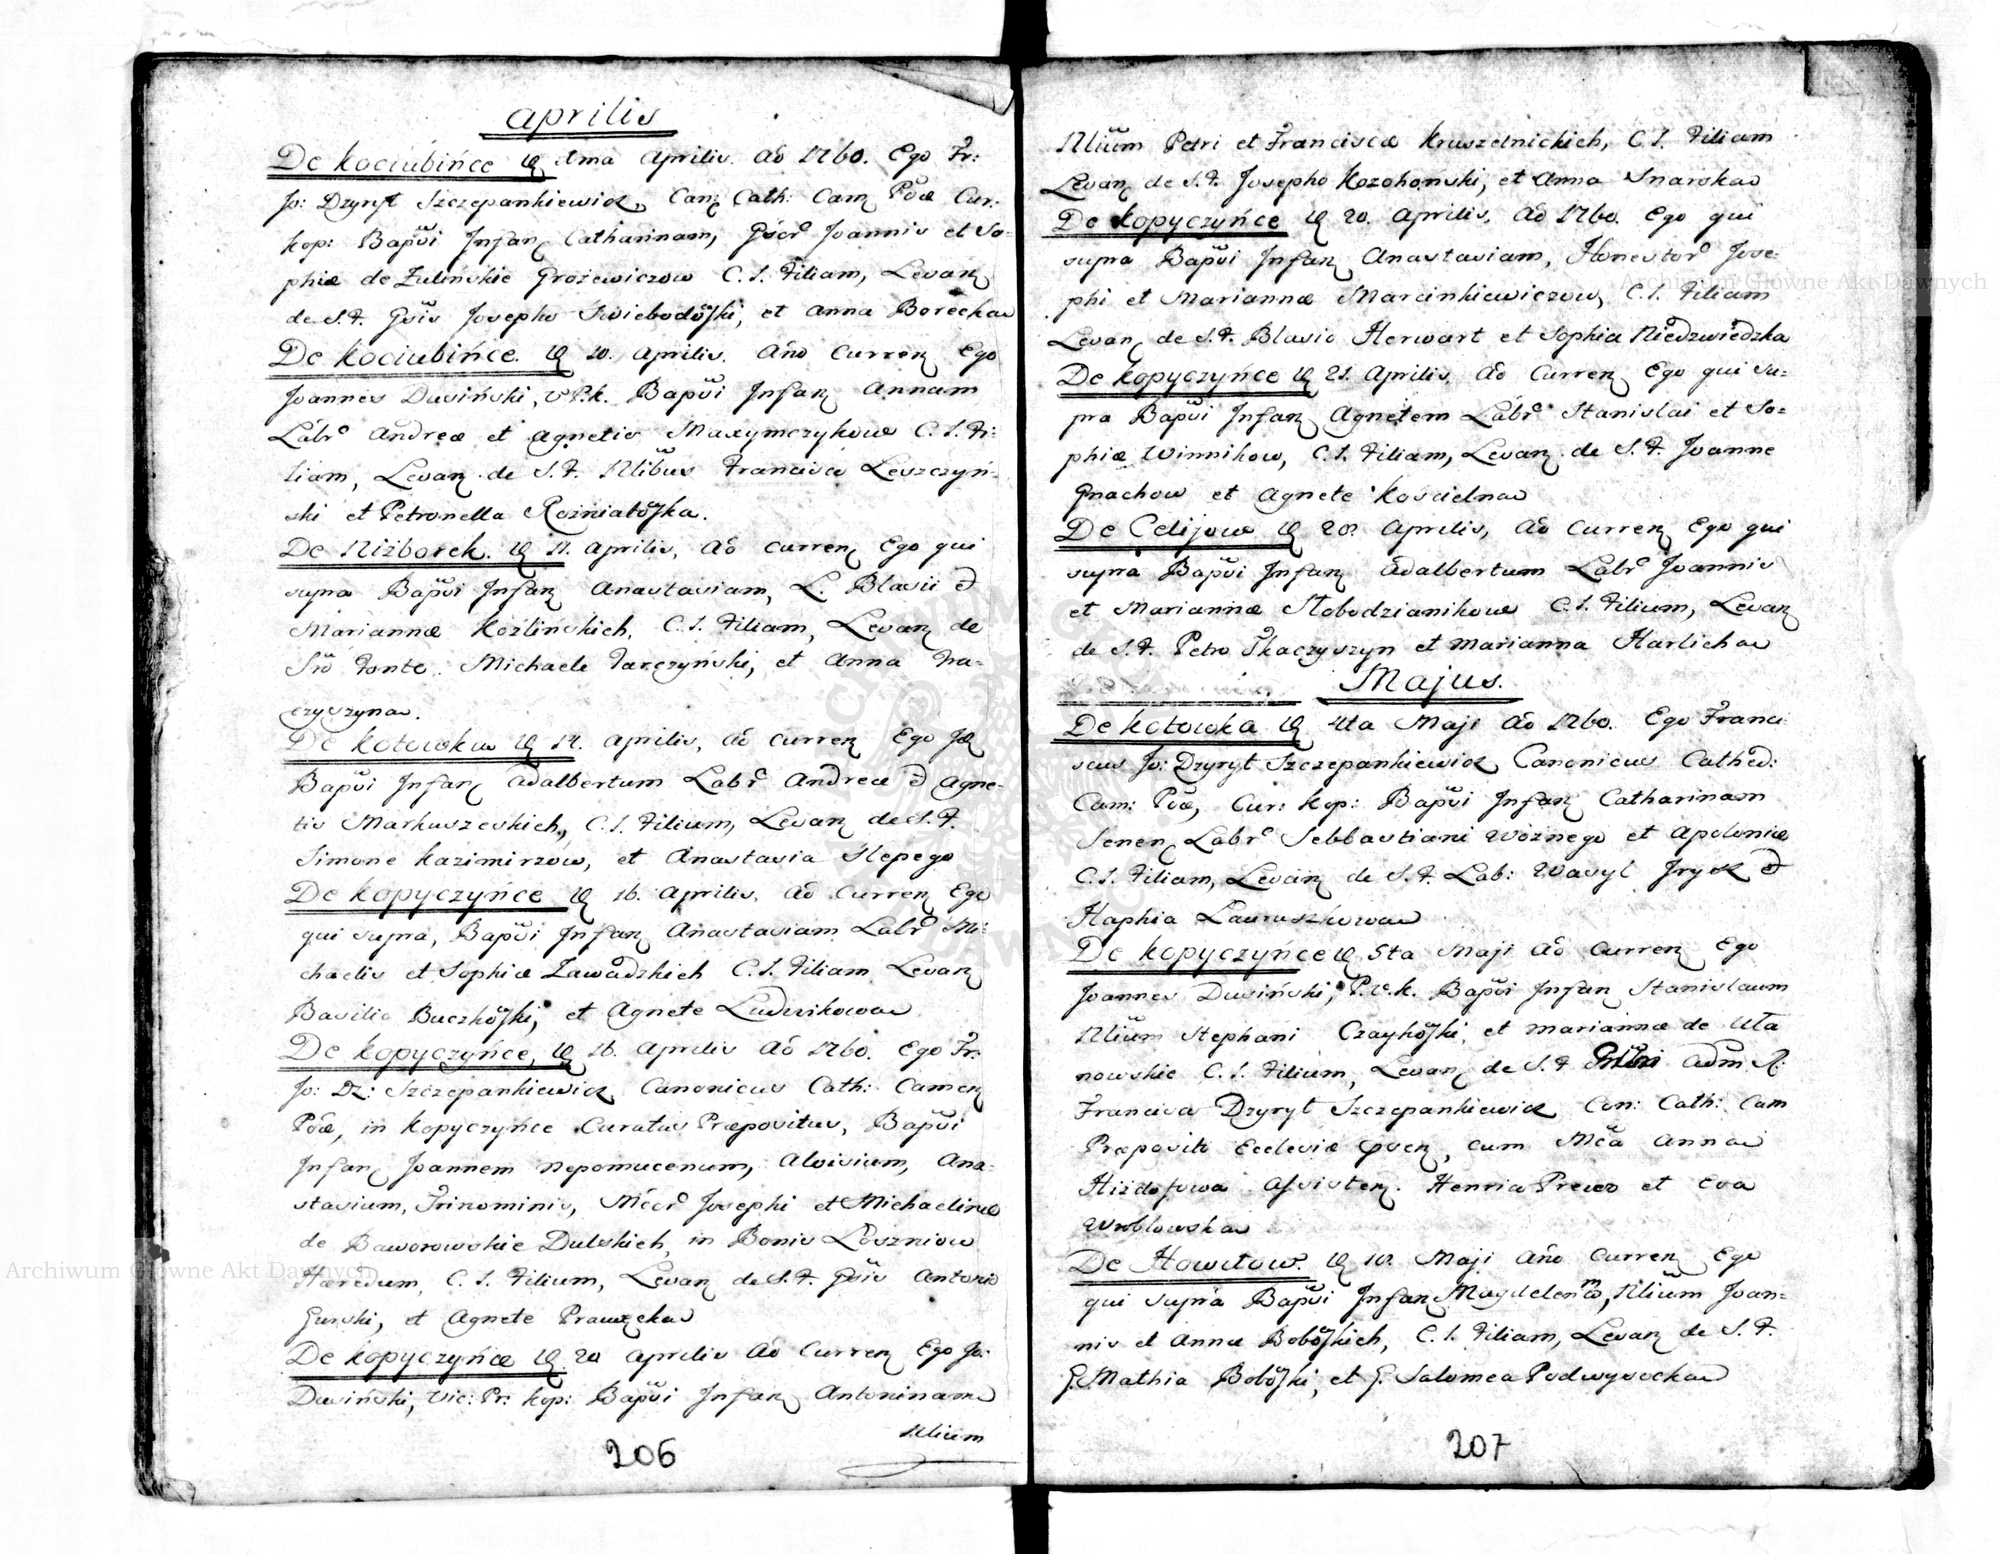 Aprilis
De Kociubińce D 1ma Aprilis. Aõ 1760. Ego Fr:
Jo: Dzyryt Szczepankiewicz, Can: Cath: Cam: Põd Cur:
Kop: Bapvi Infan Catharinam, Gscr Joannis et So=
phiæ de Zulinskie Grozewiczow C. L. Filiam, Levan
de S. F. Gsis Josepho Swiebodoski, et Anna Borecka
De Kociubińce. D 10. Aprilis. Año Curren Ego
Joannes Dusiński, V P.K. Bapvi Infan Annam
Labr Andreæ et Agnetis Maxymczykow C. L. Fi:
liam, Levan de S. F. Nlibus Francisco Leszczyń=
ski et Petronella Rozniatoska.
De Niżborek. D 11. Aprilis, Aõ Curren Ego qui
supra Bapvi Infan Anastasiam, L. Blasii &
Mariannæ Kozlińskich, C. L. Filiam, Levan de
Sro Fonte. Michaele Tarczyński, et Anna Tka=
czyszyna.
De Kotowka D 14. Aprilis, Aõ Curren Ego Jd
Bapvi Infan Adalbertum Labr Andreæ & Agne=
tis Markuszeskich, C. L. Filium, Levan de S. F.
Simone Kazimirzow, et Anastasia Slepego
De Kopyczyńce D 16. Aprilis, Aõ Curren Ego
qui supra, Bapvi Infan Anastasiam Labr Mi=
chaelis et Sophiæ Zawadzkich C. L. Filiam Levan
Basilio Buczkoski, et Agnete Ludwikowa
De Kopyczyńce, D 16. Aprilis Aõ 1760. Ego Fr:
Jo: Dz: Szczepankiewicz Canonicus Cath: Camen
Põd, in Kopyczyńce Curatus Præpositus, Bapvi
Infan Joannem Nepomucenum, Aloisium, Ana=
stasium, Trinominis, Mccr Josephi et Michaelinæ
de Baworowskie Dulskich, in Bonis Loszniow
Hæredum, C. L. Filium, Levan de S. F. Gsis Antonio
Gurski, et Agnete Prauzcka
De Kopyczyńce D 20 Aprilis Aõ Curren Ego Jo:
Dusiński, Vic: Pr: Kop: Bapvi Infan Antoninam
Nlium
206
Nlium Petri et Franciscæ Kruszelnickich, C. L. Filiam
Levan de S. F. Josepho Kozohonski, et Anna Snarska
De Kopyczyńce D 20. Aprilis, Aõ 1760. Ego qui
supra Bapvi Infan Anastasiam, Honestor Jose:
phi et Mariannæ Marcinkiewiczow, C. L. Filiam
Levan de S. F. Blasio Herwart et Sophia Niedzwiedzka
De Kopyczyńce D 21. Aprilis, Aõ Curren Ego qui su=
pra Bapvi Infan Agnetem Labr Stanislai et So=
phiæ Winnikow, C. L. Filiam, Levan de S. F. Joanne
Gnachow et Agnete Koscielna
De Celijow D 20. Aprilis, Aõ Curren Ego qui
supra Bapvi Infan Adalbertum Labr Joannis
et Mariannæ Slobodzianikow C. L. Filium, Levan
de S. F. Petro Tkaczyszyn et Marianna Harlicka
Majus.
De Kotowka D 4ta Maji Aõ 1760. Ego Franci
scus Jo: Dzyryt Szczepankiewicz Canonicus Cathed:
Cam: Põd, Cur: Kop: Bapvi Infan Catharinam
Senen Labr Sebbastiani Woznego et Apoloniæ
C. L. Filiam, Levan de S. F. Lab: Wasyl Jryk &
Haphia Lauruszkowa
De Kopyczyńce D 5ta Maji Aõ Curren Ego
Joannes Dusiński, P.V.K. Bapvi Infan Stanislaum
Nlium Stephani Czaykoski, et Mariannæ de Ula
nowskie C. L. Filium, Levan de S. F. Adm R:
Francisco Dzyryt Szczepankiewicz Can: Cath: Cam
Præposito Ecclesiæ, cum Mca Anna
Assisten. Henrico Prewo et Eva
Wroblowska
De Howilow. D 10. Maji Año Curren Ego
qui supra Bapvi Infan Magdelenam, Nlium Joan=
nis et Annæ Boboskich, C. L. Filiam, Levan de S. F.
G. Mathia Boboski, et G. Salomea Podwysocka
207
Archiwum Główne Akt Dawnych
Archiwum Główne Akt Dawnych